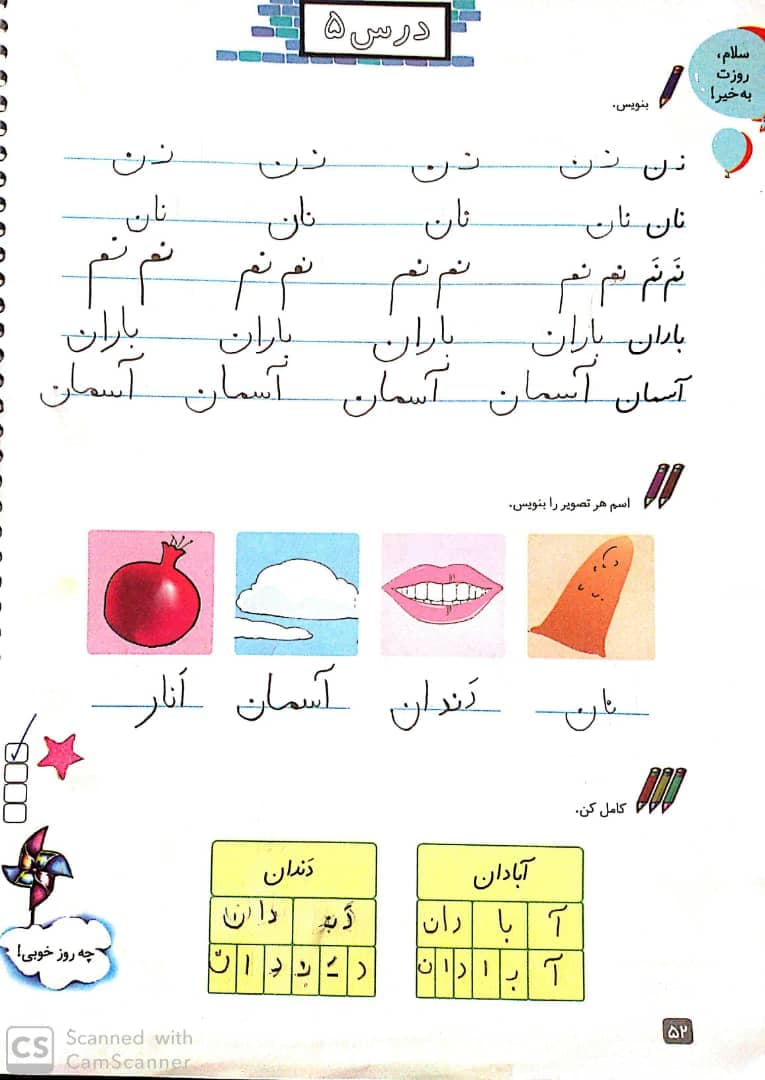 درس ۵
سلام،
روزت
به‌خیر!
بنویس.
نـ ن نـ ن نـ ن نـ ن نـ ن
نان نان نان نان نان
نَم‌نَم نم نم نم نم نم نم نم نم
باران باران باران باران باران
آسمان آسمان آسمان آسمان آسمان
اسم هر تصویر را بنویس.
نان دَندان آسمان اَنار
کامل کن.
آبادان دَندان
آ با دان دَنـ دان
آ بـ ا د ا ن د ــَـ نـ د ا ن
چه روز خوبی!
۵۲
CS Scanned with
CamScanner